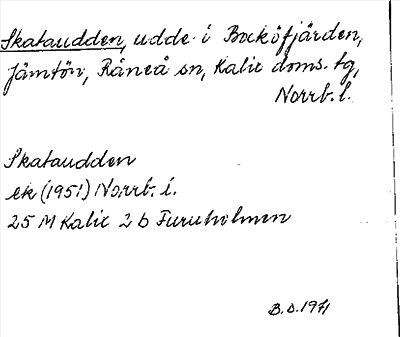 Skataudden, udde i Bocköfjärden,
Jämtön, Råneå sn, Kalix doms. tg,
Norrb. l.
Skataudden
ek (1951) Norrb. l.
25 M Kalix 2 b Furuholmen
B.D. 1971